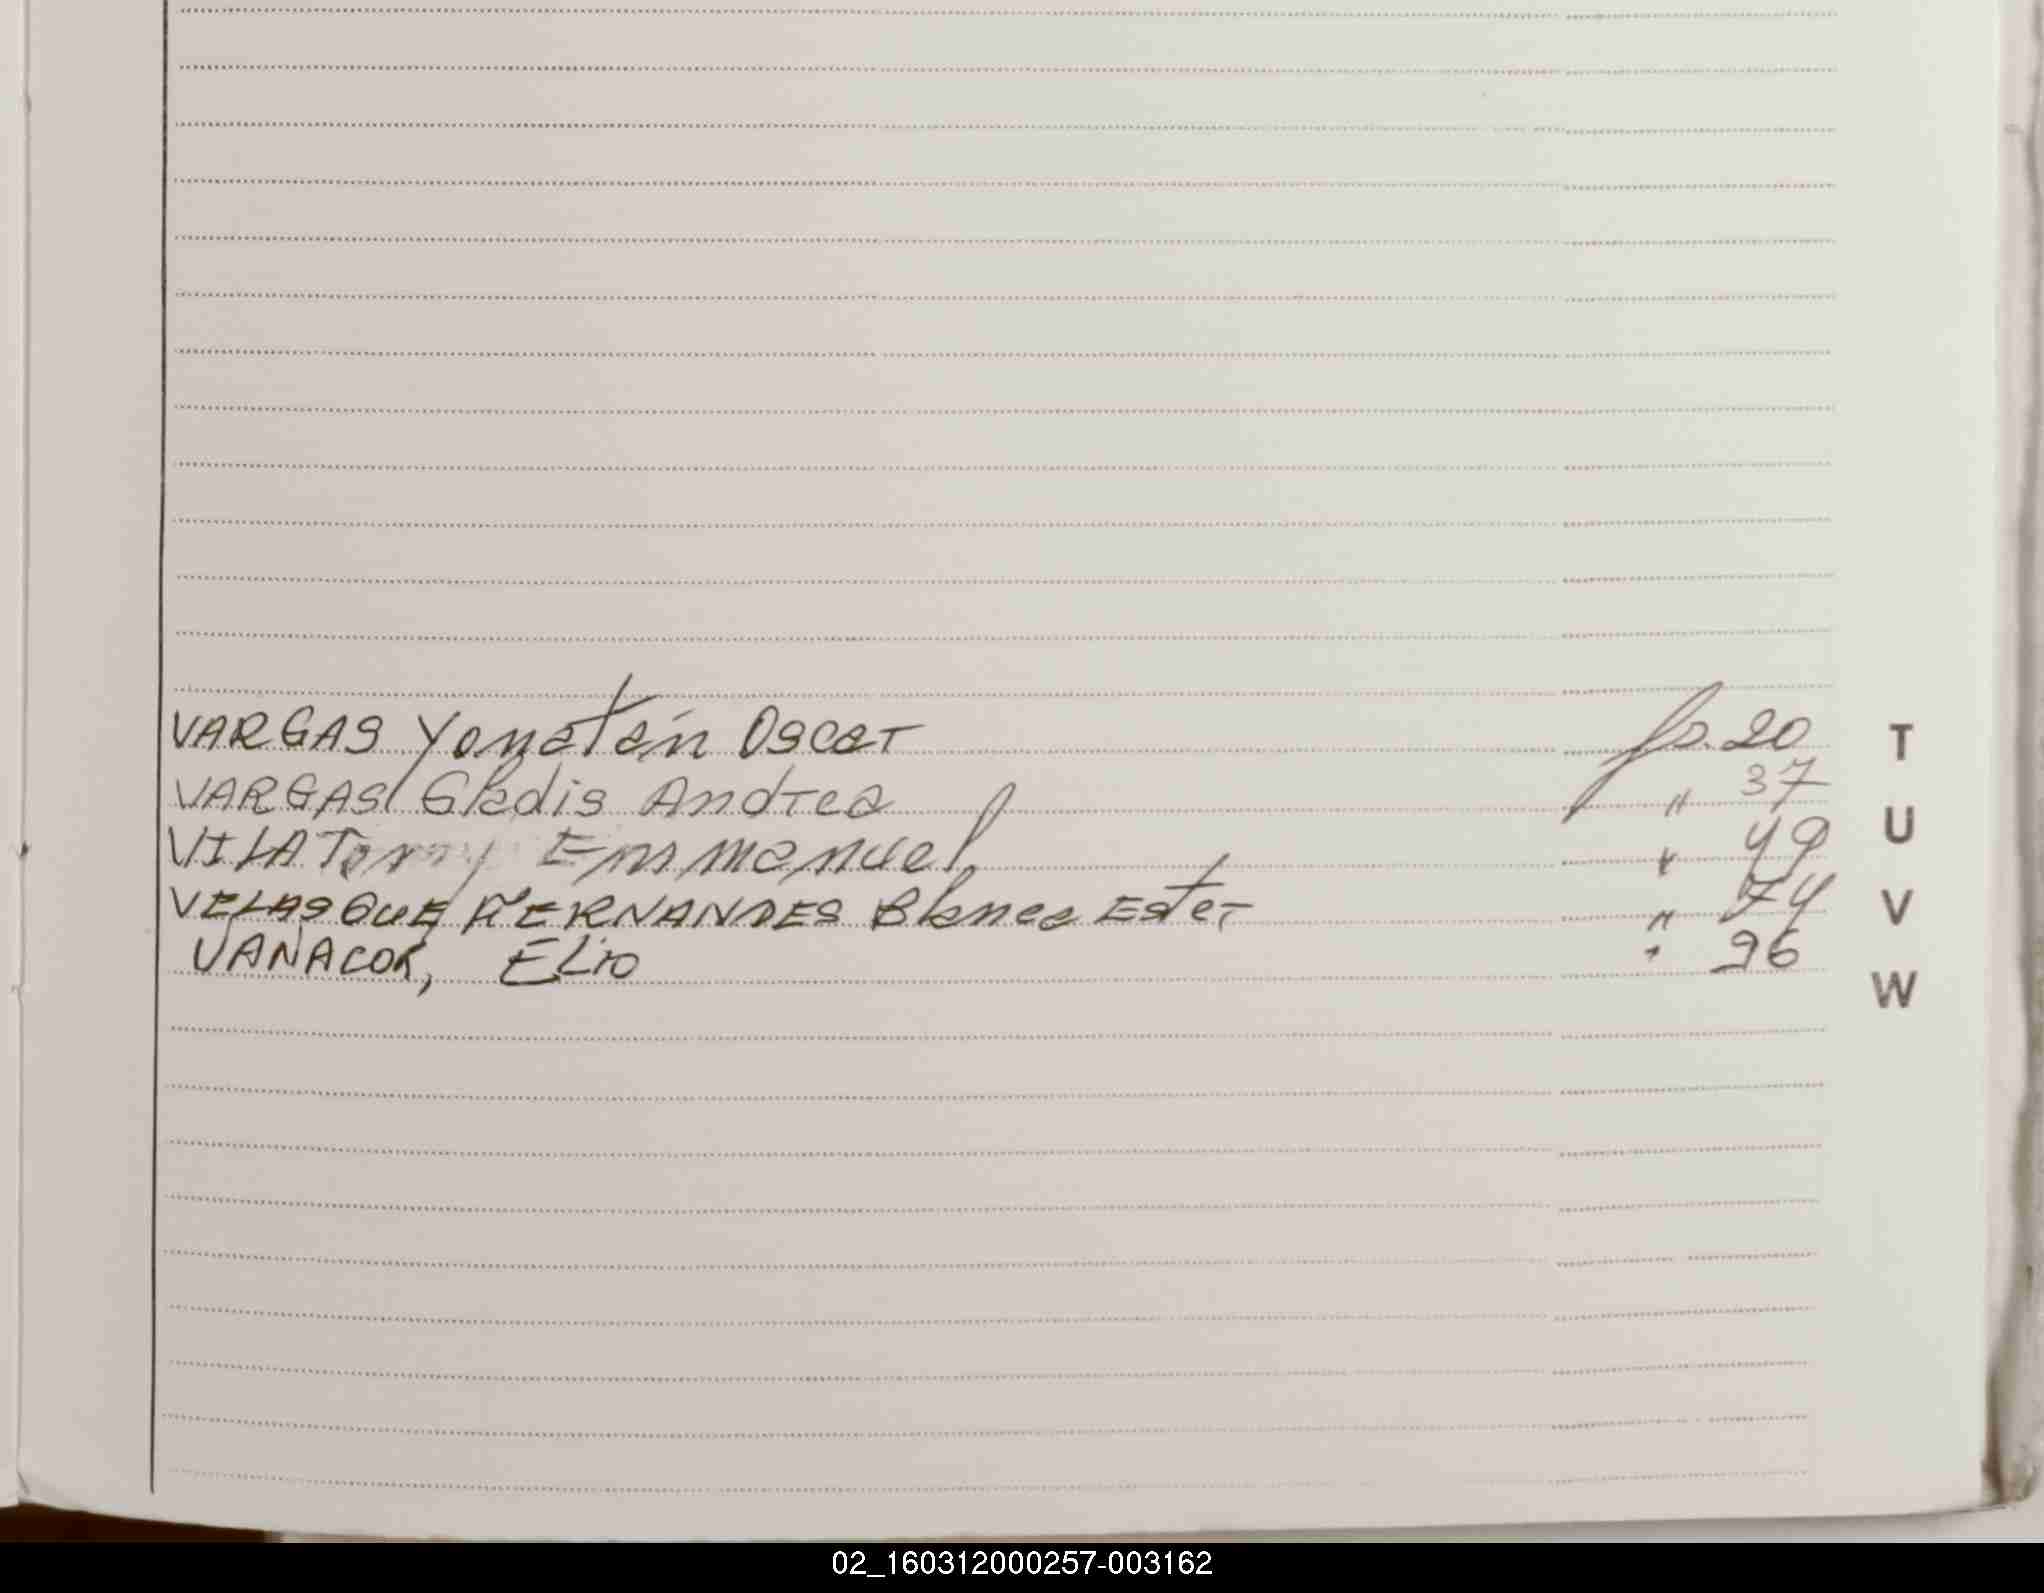 VARGAS Yonatán Oscar fs. 20
VARGAS Gladis Andrea " 37
VILA Emmanuel " 49
VELASQUE FERNANDES Blanca Ester " 74
VANACOR, ELIO " 96
T
U
V
W
02_160312000257-003162